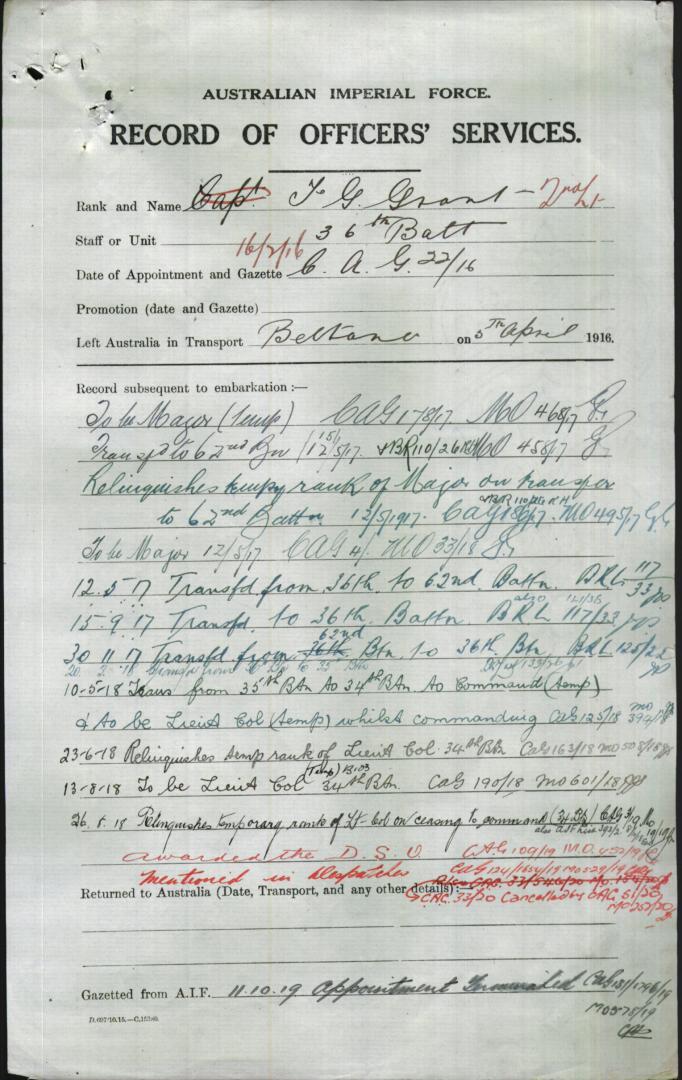 AUSTRALIAN IMPERIAL FORCE.
RECORD OF OFFICERS' SERVICES.
Rank and Name Capt. F G. Grant - 2nd Lt
Staff or Unit 36th Batt
16/2/16
Date of Appointment and Gazette C. A. G. 22/16
Promotion (date and Gazette)
Left Australia in Transport Beltana on 5th April 1916.
Record subsequent to embarkation :—
To be Major (temp) CAG 178/17 MO 468/17
Transfd to 62nd Bn 12/5/17 BR 110/26 MO 458/17
BR 110/26 RH
Relinquishes tempy rank of Major on transfer
to 62nd Battn 12/5/1917. CAG 189/17. MO 495/17
To be Major 12/5/17 CAG 4/ MO 33/18
12. 5. 17 Transfd from 36th. to 62nd. Battn. BRL 117/33
also 121/36
15. 9. 17 Transfd. to 36th. Battn. BRL 117/33
62nd
30 11 17 Transfd from 36th. Btn. to 36th. Btn. BRL 125/22
10-5-18 Trans from 35th Btn to 34th Btn. to Command (temp)
& to be Lieut Col (temp) whilst commanding CAG 125/18 MO 394/18
23-6-18 Relinquishes temp rank of Lieut Col. 34th Btn CAG 163/18 MO 508/18
(Temp)
13-8-18 To be Lieut Col 34th Btn. CAG 190/18 MO 601/18
26. 8. 18 Relinquishes temporary rank of Lt-Col on ceasing to command (34 Bn) CAG 3/19 MO 19/19
awarded the D. S. O CAG 109/19 M.O. 452/19
Mentioned in Despatches CAG 124/1654/19 MO 529/19
Returned to Australia (Date, Transport, and any other details):—
CAG. 33/20 Cancelled by CAG 51/20
MO 252/20
Gazetted from A.I.F. 11.10.19 Appointment Terminated CAG 131/1796/19
MO 575/19
D.697/10.15.—C.15260.